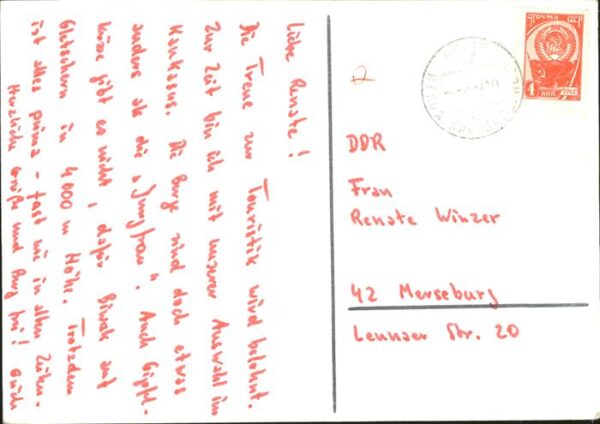 Liebe Renate!
Die Treue zur Touristik wird belohnt.
Zur Zeit bin ich mit unserer Auswahl im
Kaukasus. Die Burg sind doch etwas
anders als die „Jungfrau". Auch Gipfel-
küsse gibt es nicht, dafür Biwak auf
Gletschern in 4000 m Höhe. Trotzdem
ist alles prima - fast wie in alten Zeiten.
Herzliche Grüße und Berg frei!
ПОЧТА СССР
4 КОП 1961
DDR
Frau
Renate Winzer
42 Merseburg
Leunaer Str. 20